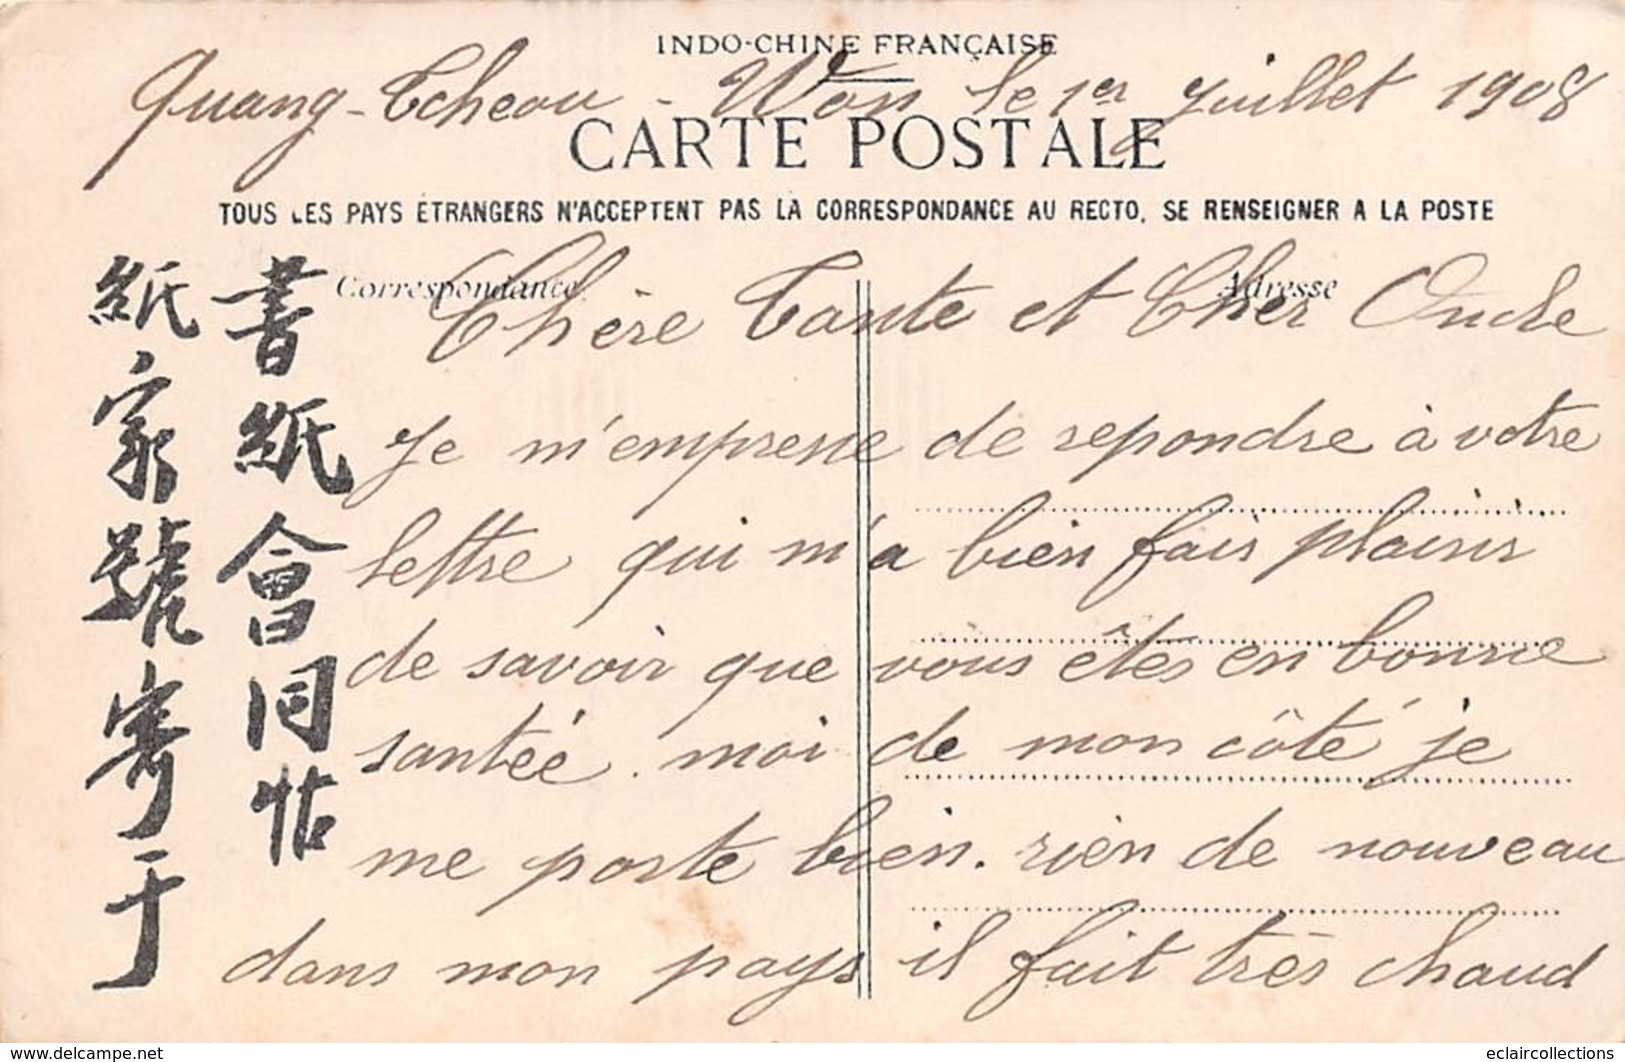 INDO-CHINE FRANÇAISE
Quang-Tcheou-Wan le 1er Juillet 1908
CARTE POSTALE
TOUS LES PAYS ÉTRANGERS N'ACCEPTENT PAS LA CORRESPONDANCE AU RECTO, SE RENSEIGNER A LA POSTE
Correspondance Adresse
書紙會同帖
紙家號寄于
Chère Tante et Cher Oncle
Je m'empresse de repondre à votre
lettre qui m'a bien fais plaisir
de savoir que vous êtes en bonne
santée. moi de mon côté je
me porte bien. rien de nouveau
dans mon pays il fait très chaud
www.delcampe.net
eclaircollections